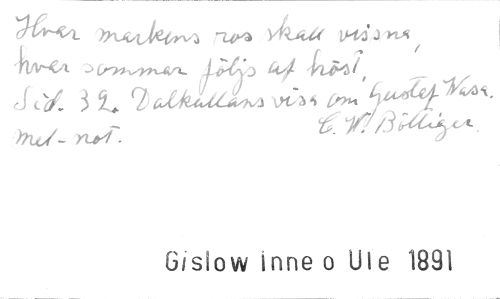 Hvar markens ros skall vissna,
hvar sommar följs af höst,
Sid. 32. Dalkullans visa om Gustef Wasa.
mel-not. C. W. Böttiger.
Gislow inne o Ule 1891